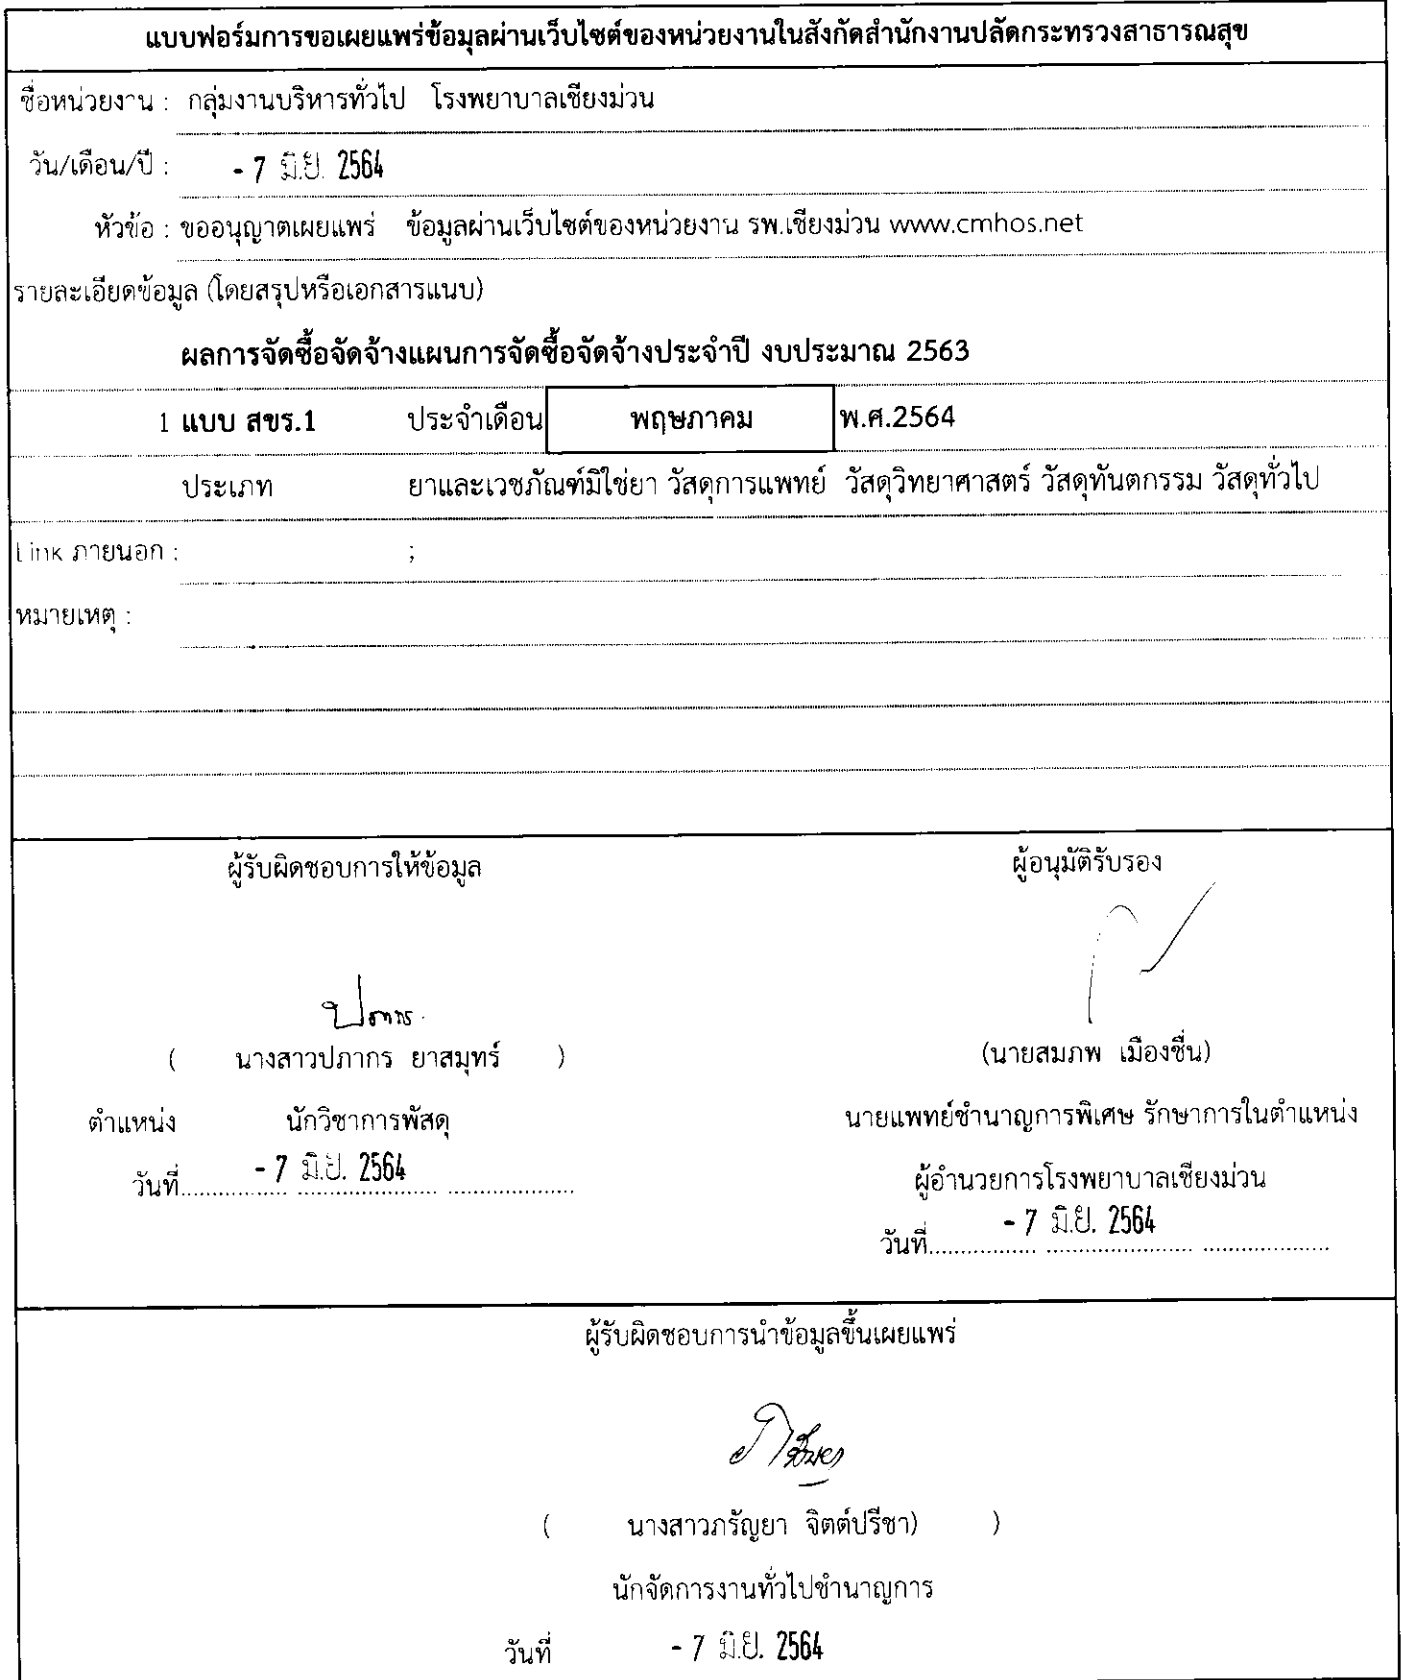 แบบฟอร์มการขอเผยแพร่ข้อมูลผ่านเว็บไซต์ของหน่วยงานในสังกัดสำนักงานปลัดกระทรวงสาธารณสุข
ชื่อหน่วยงาน : กลุ่มงานบริหารทั่วไป โรงพยาบาลเชียงม่วน
วัน/เดือน/ปี : - 7 มิ.ย. 2564
หัวข้อ : ขออนุญาตเผยแพร่ ข้อมูลผ่านเว็บไซต์ของหน่วยงาน รพ.เชียงม่วน www.cmhos.net
รายละเอียดข้อมูล (โดยสรุปหรือเอกสารแนบ)
ผลการจัดซื้อจัดจ้างแผนการจัดซื้อจัดจ้างประจำปี งบประมาณ 2563
1 แบบ สขร.1 ประจำเดือน พฤษภาคม พ.ศ.2564
ประเภท ยาและเวชภัณฑ์มิใช่ยา วัสดุการแพทย์ วัสดุวิทยาศาสตร์ วัสดุทันตกรรม วัสดุทั่วไป
Link ภายนอก : ;
หมายเหตุ :
ผู้รับผิดชอบการให้ข้อมูล
ปภากร
( นางสาวปภากร ยาสมุทร์ )
ตำแหน่ง นักวิชาการพัสดุ
วันที่ - 7 มิ.ย. 2564
ผู้อนุมัติรับรอง
(นายสมภพ เมืองชื่น)
นายแพทย์ชำนาญการพิเศษ รักษาการในตำแหน่ง
ผู้อำนวยการโรงพยาบาลเชียงม่วน
วันที่ - 7 มิ.ย. 2564
ผู้รับผิดชอบการนำข้อมูลขึ้นเผยแพร่
( นางสาวภรัญยา จิตต์ปรีชา) )
นักจัดการงานทั่วไปชำนาญการ
วันที่ - 7 มิ.ย. 2564